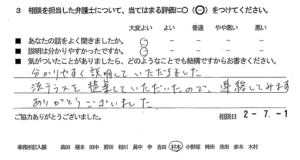 3 相談を担当した弁護士について、当てはまる評価に○（⊖）をつけてください。
大変よい よい 普通 やや悪い 悪い
■ あなたの話をよく聞きましたか。
■ 説明は分かりやすかったですか。
■ 気がついたことがありましたら、どのようなことでも結構ですからお書きください。
分かりやすく説明していただけました
法テラスを提案していただいたので、連絡してみます
ありがとうございました
ご協力ありがとうございました。
相談日 2-7.-1
事務局記入欄 森田 榎本 田中 野田 和川 眞中 申 吉田 村木 小野塚 時田 池田 赤木 木村